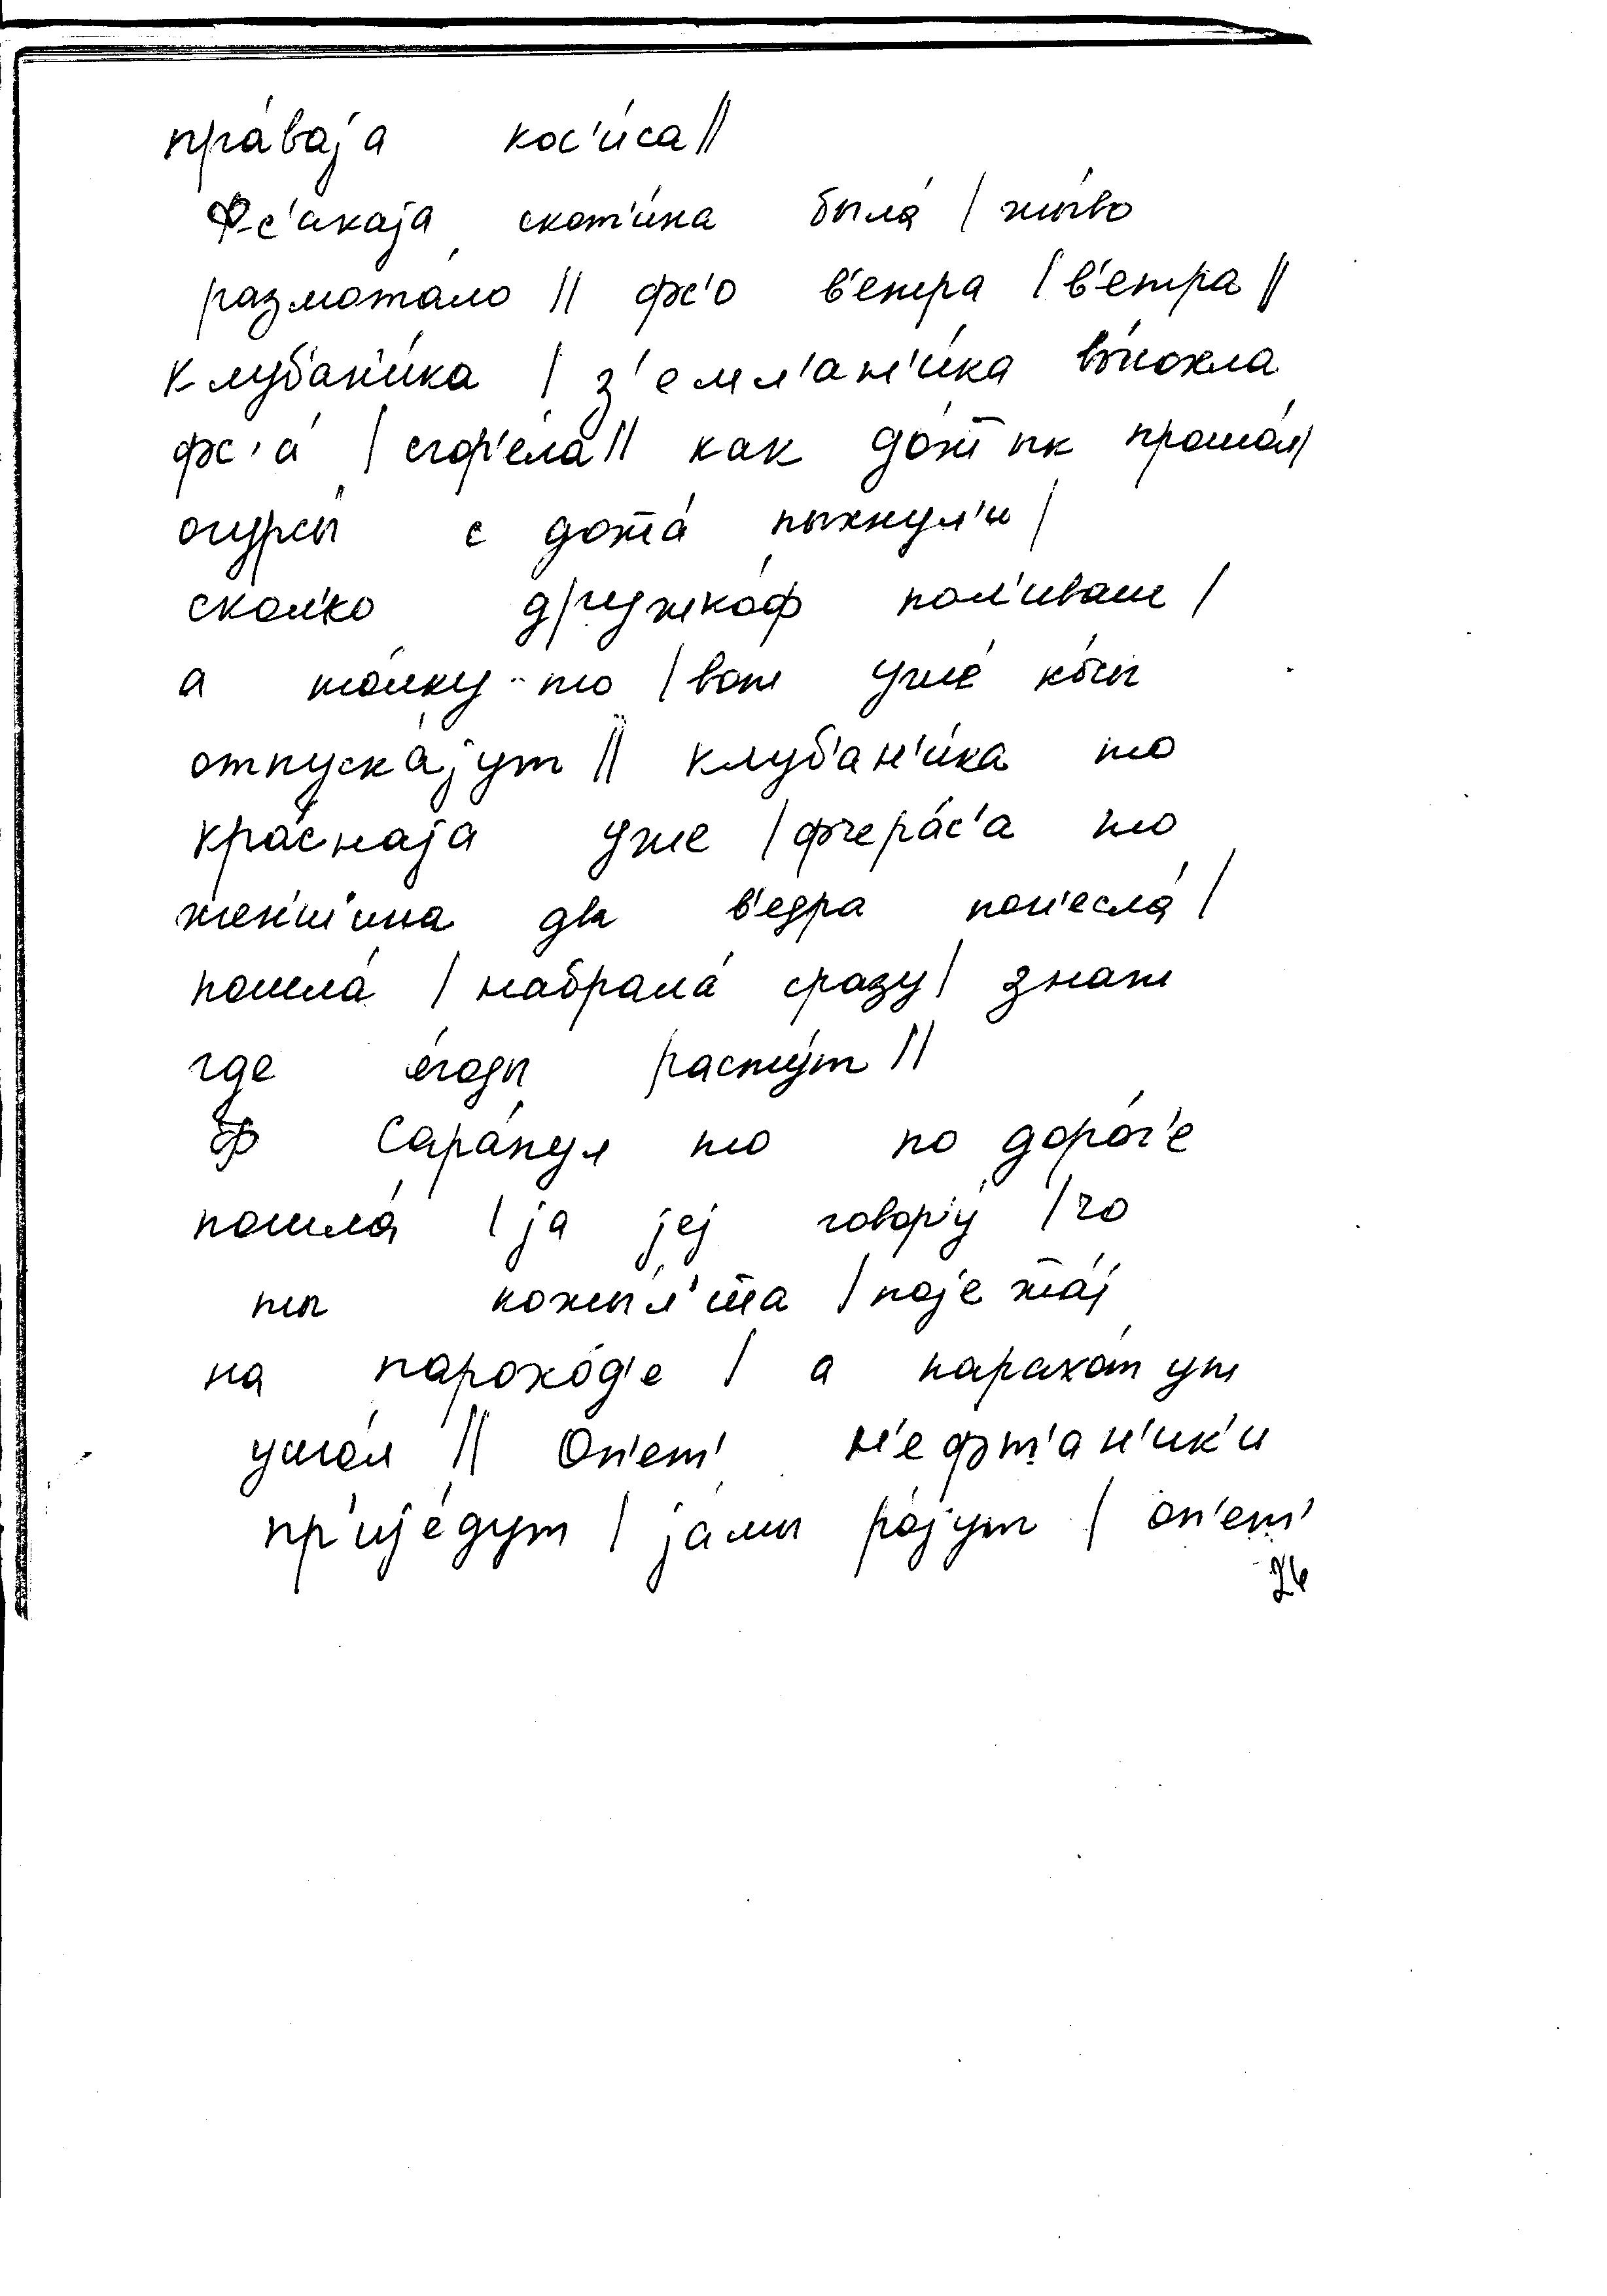 пра́ваjа кос'и́са||
Фс'акаjа скот'и́на была́ | жы́во
размота́ло || фс'о в'етра | в'етра ||
клубан'и́ка | з'емл'ан'и́ка вы́сохла
фс'а́ | сгор'е́ла || как до́ш прошо́л|
огурсы́ с дожа́ пыхнул'и |
скол'ко дружко́ф пол'иваш |
а то́лку-то | вот уже́ ко́сы
отпуска́jут || клуб'ан'и́ка то
кра́снаjа уже | фчера́с'а то
жен'ш'ина два в'едра пон'есла́ |
пошла́ | набрала́ сразу | знат
где е́годы расту́т ||
Ф Сара́пул то по доро́г'е
пошла́ | jа jej говор'у́ | чо
ты кожыл'и́ша | поjежа́j
на парохо́д'е | а парахо́т ут
ушо́л || Оп'ет' н'ефт'ан'ик'и
пр'иjе́дут | jа́мы ро́jут | оп'ет'
26